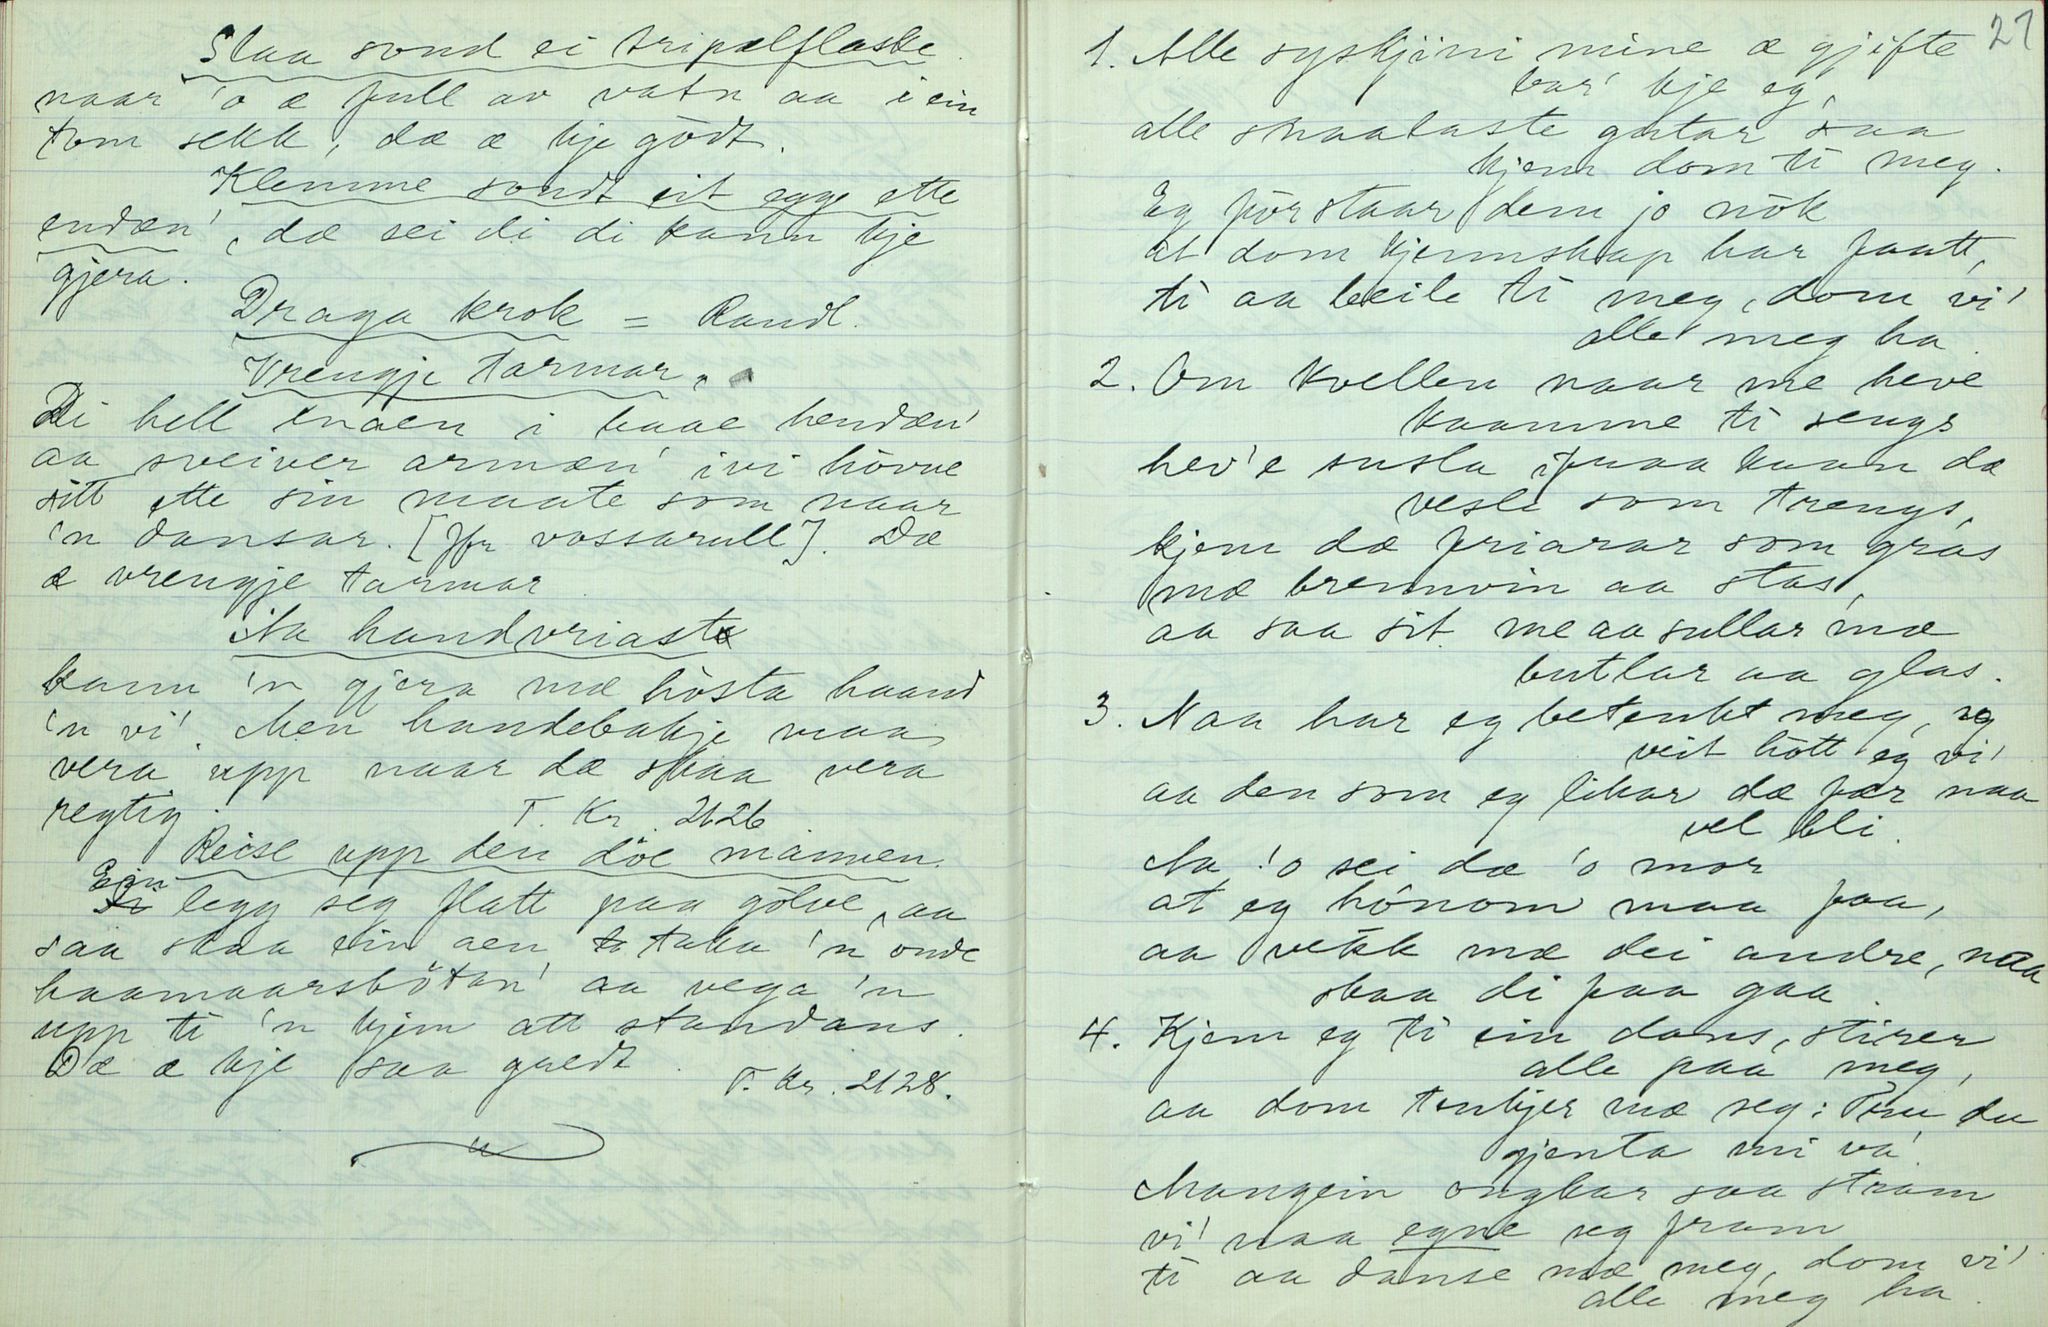 Slaa sond ei tripælflaske
naar 'o æ full av vatn aa i ein
tom sekk, dæ æ kje gødt.
Klemme sondt eit egg ette
endæn', dæ sei di di kann kje
gjera.
Draga krok = Kandl.
Vrengje tarmar.
Di hell inaen i baae hendæn'
aa sveiver armæn' ivi hövue
sitt ette sin maate som naar
'n dansar. [Jfr vossarull]. Dæ
æ vrengje tarmar
Na handvriaste
kann 'n gjera mæ hösta haand
'n vi'. Men handebakje maa
vera upp naar dæ skaa vera
regtig.
T. Kr. 2126
Reise upp den döe mannen.
Ein legg seg flatt paa gölve, aa
saa skaa ein aen taka 'n onde
haamaarsbötan' aa vega 'n
upp ti 'n kjem att standans.
Dæ æ kje saa gredt.
T. Kr. 2128.
27
1. Alle syskjini mine æ gjifte
bar' kje eg,
alle snaalaste gutar saa
kjem dom ti meg.
Eg förstaar dem jo nök
at dom kjennskap har faatt,
ti aa beile ti meg, dom vi'
alle meg ha.
2. Om kvellen naar me heve
kaamme ti sengs
hev'e susla ifraa kaan dæ
vesle som trengs,
kjem dæ friarar som gras
mæ brennvin aa stas,
aa saa sit me aa sullar mæ
butlar aa glas.
3. Naa har eg betenkt meg, eg
veit hött eg vi'
aa den som eg likar dæ fær naa
vel bli.
Na 'o sei dæ 'o mor
at eg hönom maa faa,
aa vekk mæ dei andre, naa
skaa di faa gaa.
4. Kjem eg ti ein dans, stirer
alle paa meg,
aa dom tenkjer mæ seg: Tru du
gjenta mi va'.
Mangein ongkar saa stram
vi' naa egne seg fram
ti aa danse mæ meg, dom vi'
alle meg ha.